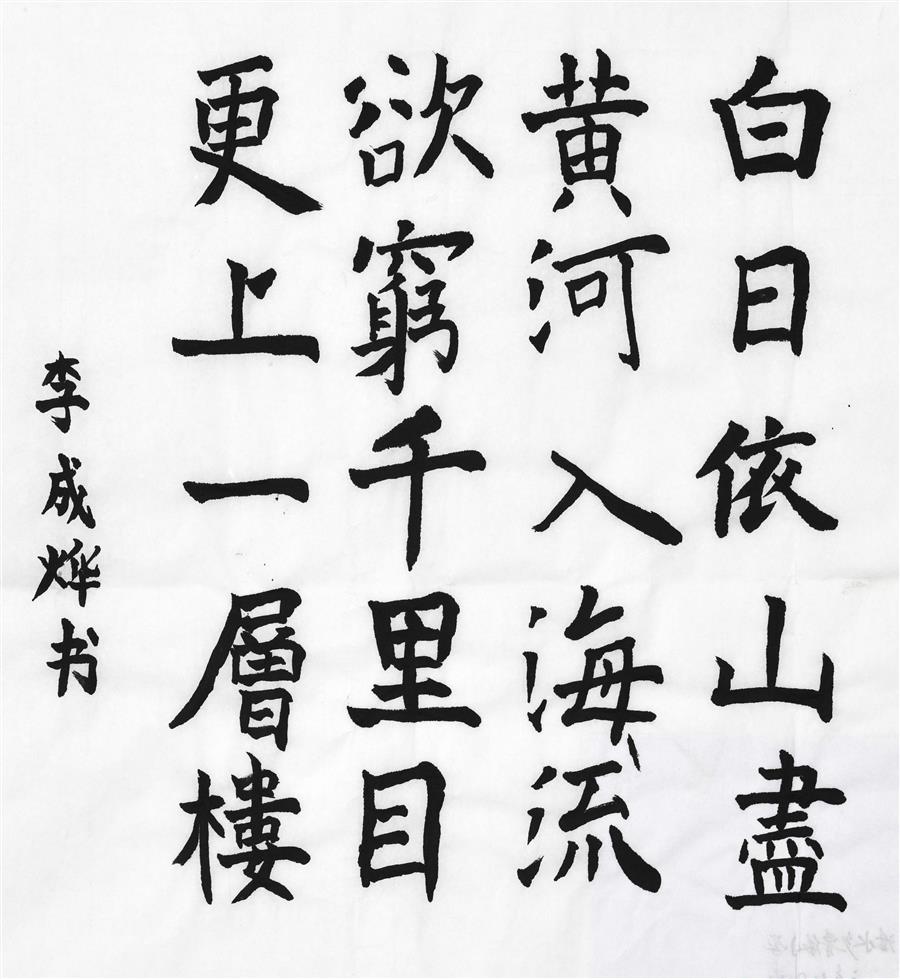 白日依山盡
黄河入海流
欲窮千里目
更上一層樓
李成烨书